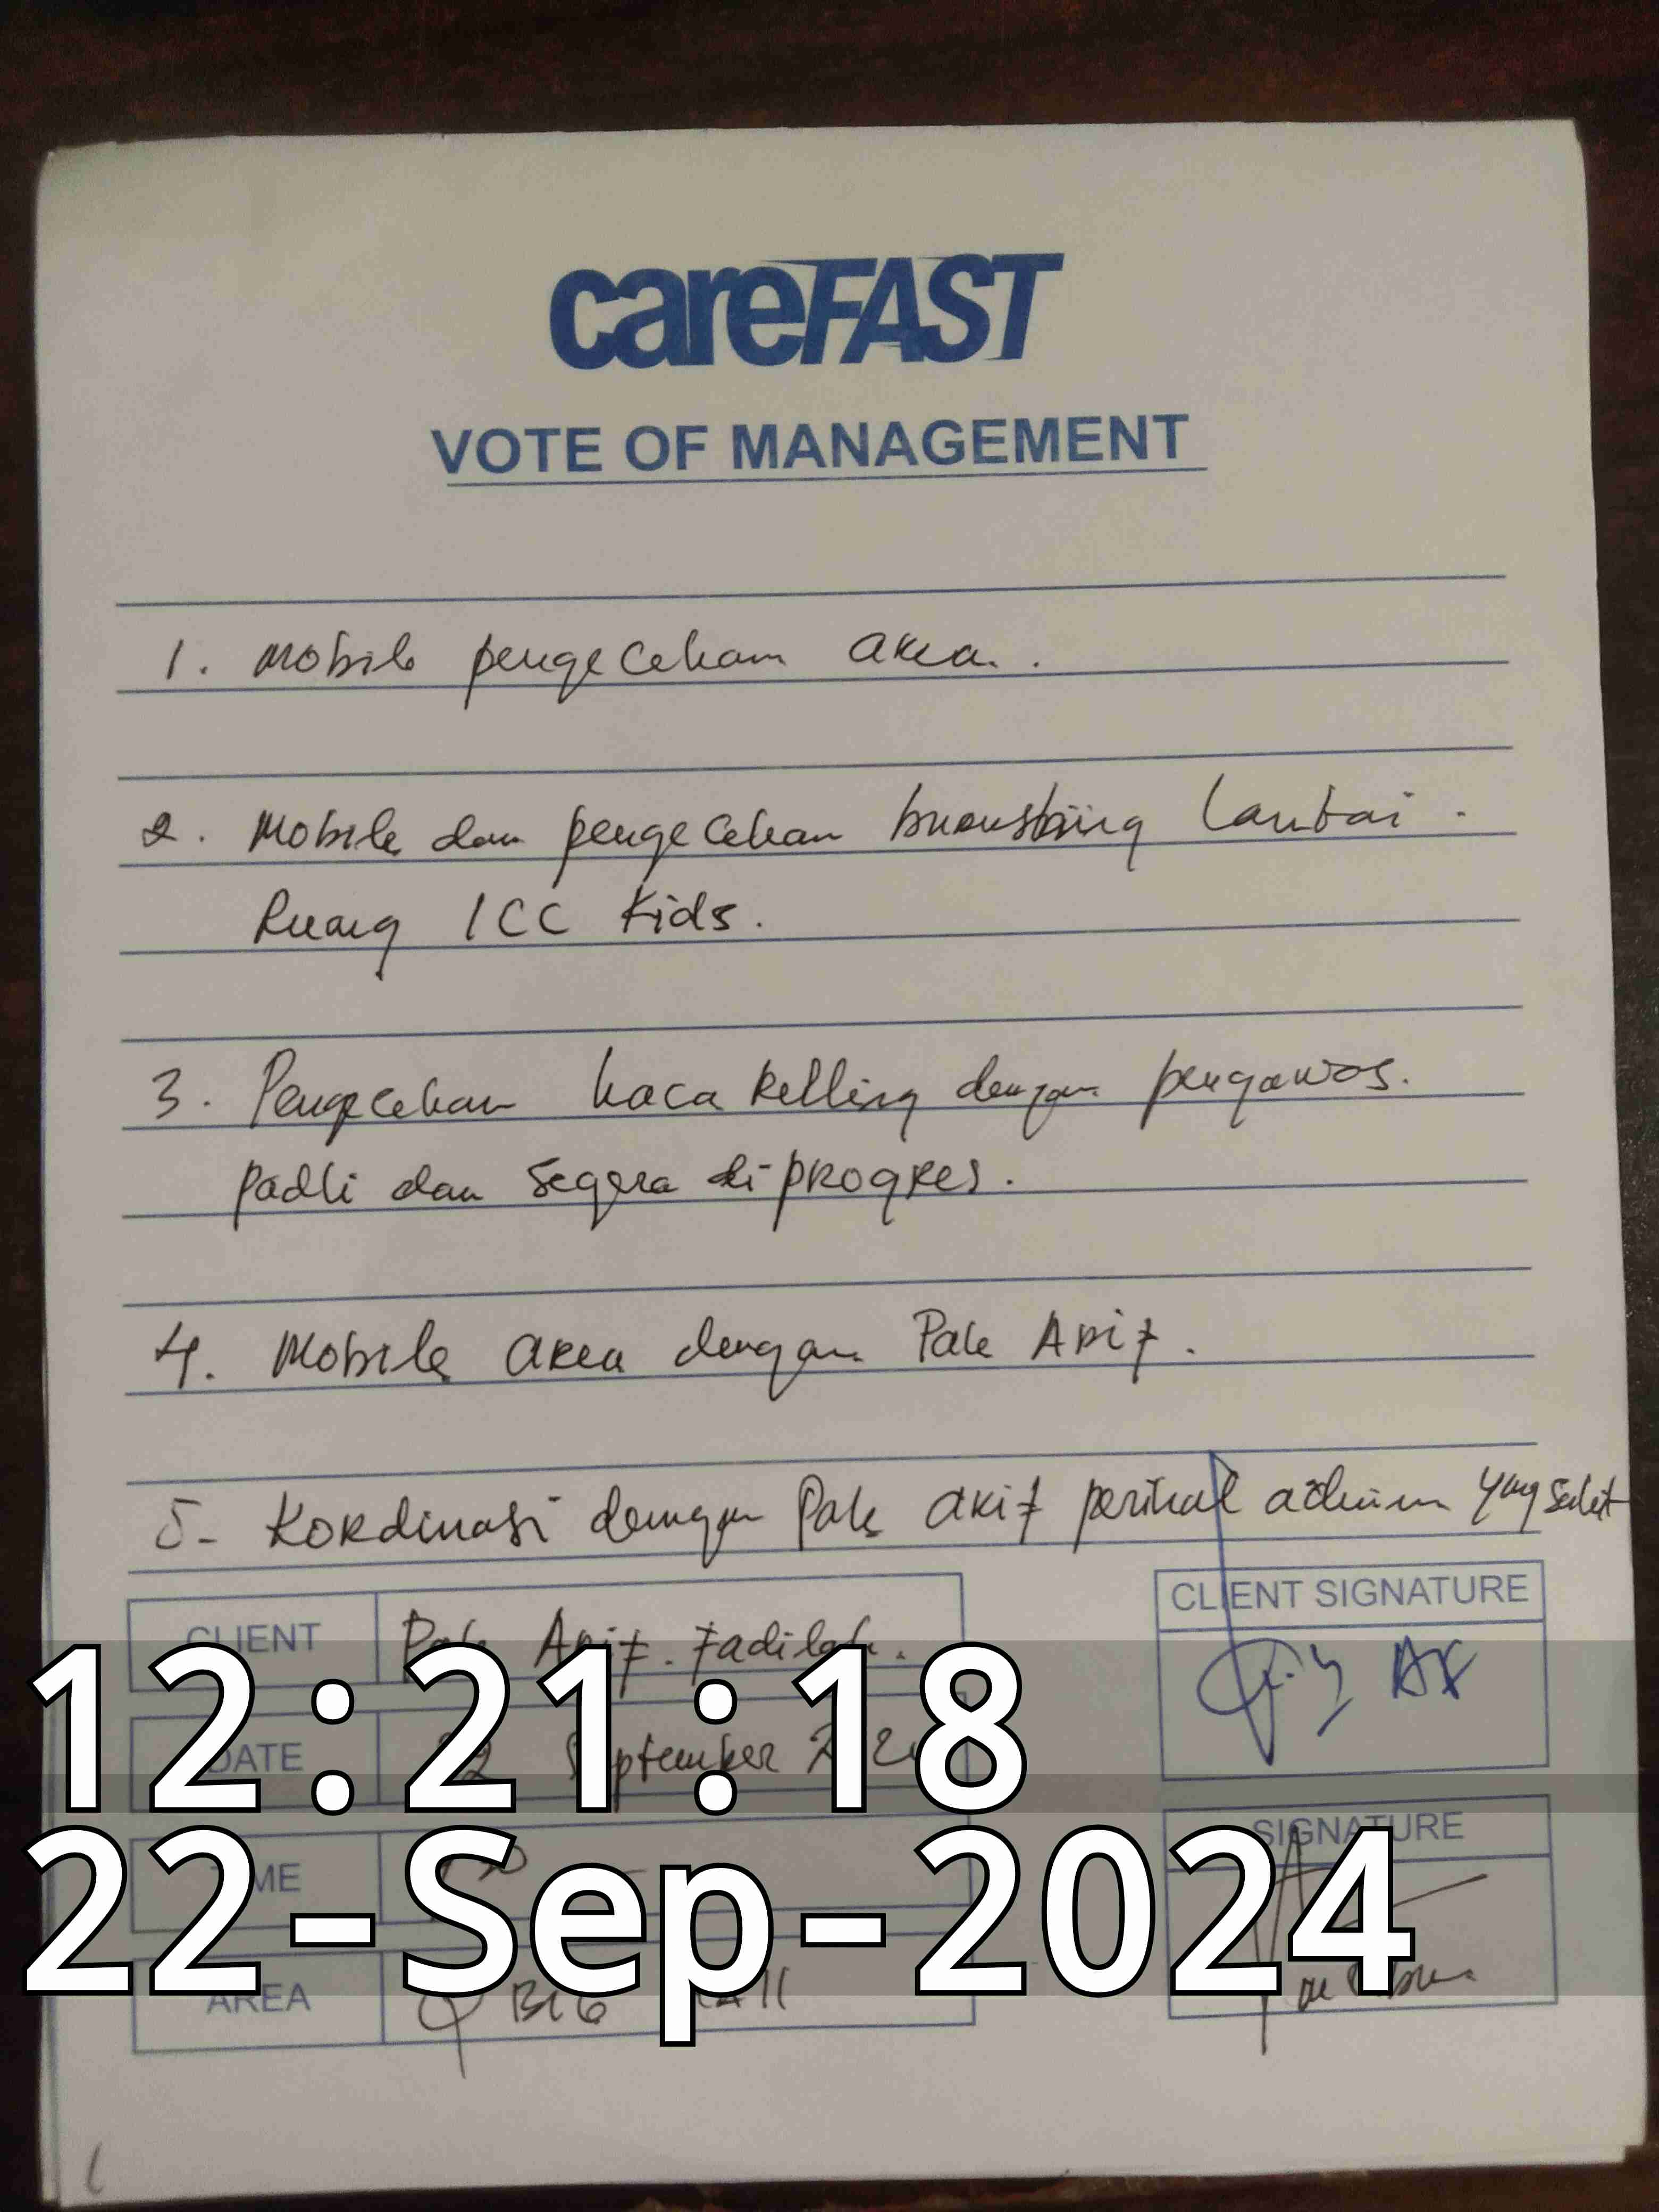 careFAST
VOTE OF MANAGEMENT
1. Mobile pengecekan area.
2. Mobile dan pengecekan brousbiing Lantai.
Ruang ICC Kids.
3. Pengecekan kaca Relling dengan pengawas.
Padli dan Segera di progres.
4. Mobile area dengan Pak Arif.
5- Kordinasi dengan Pak arif perihal admin yang sakit
CLIENT Pak Arif. Fadilah.
CLIENT SIGNATURE
AF
12:21:18
DATE 22 September
22-Sep-2024
SIGNATURE
AREA Q BIG